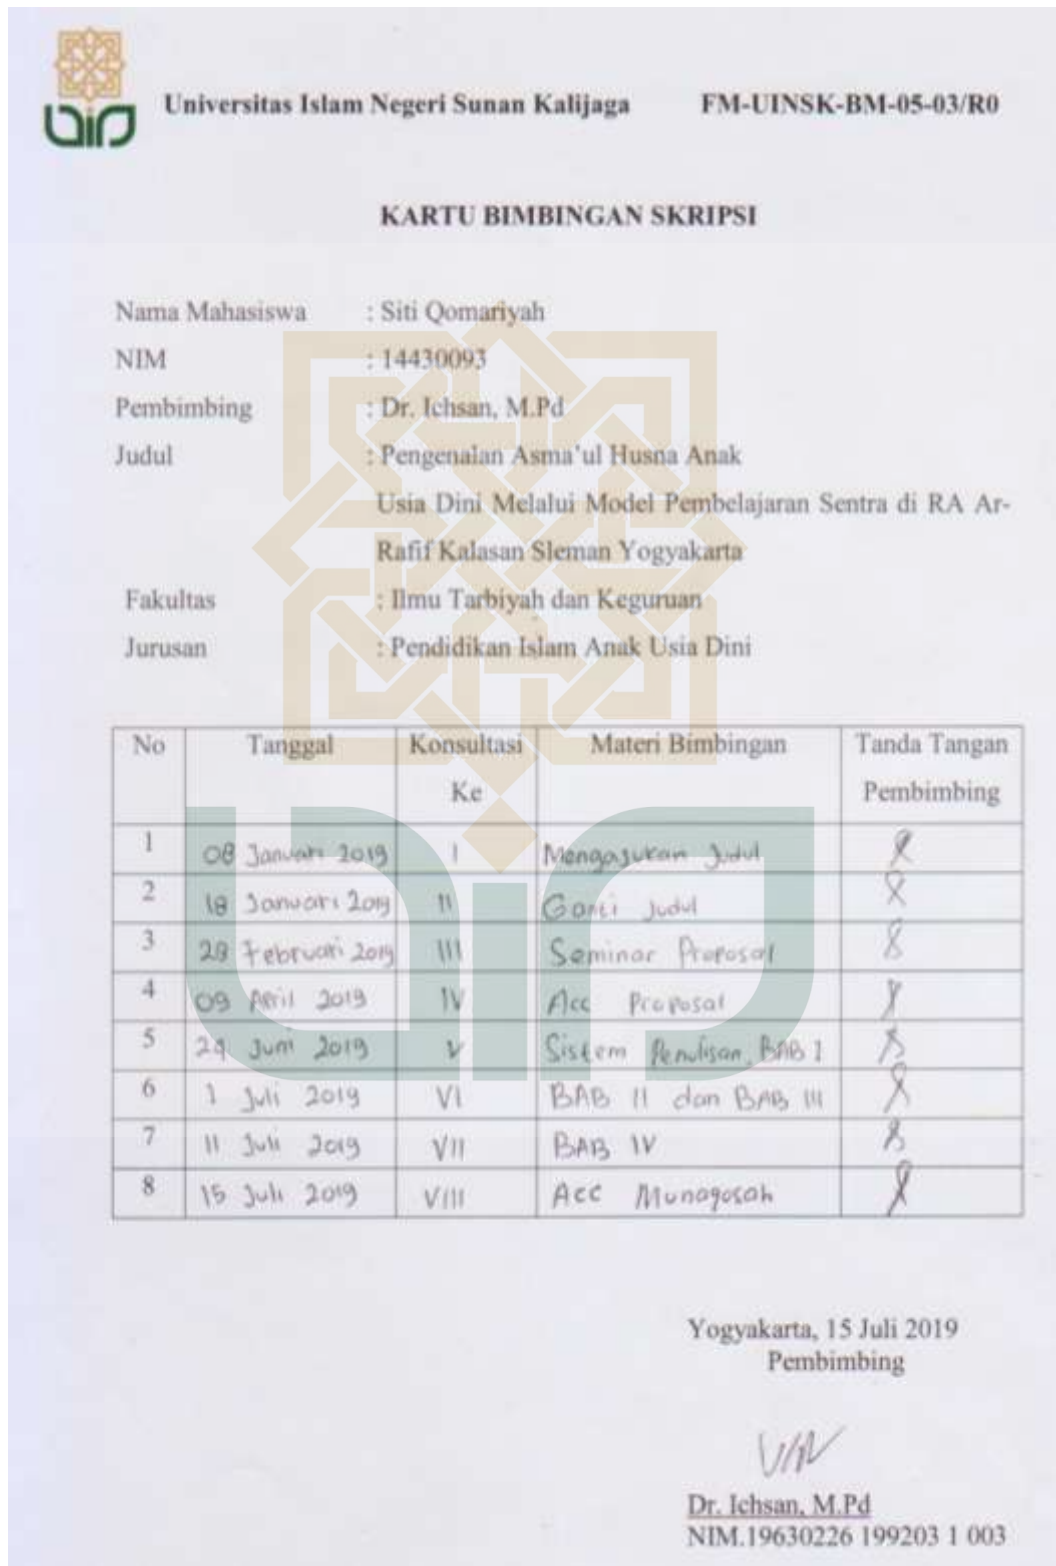 uin
Universitas Islam Negeri Sunan Kalijaga FM-UINSK-BM-05-03/R0
KARTU BIMBINGAN SKRIPSI
Nama Mahasiswa : Siti Qomariyah
NIM : 14430093
Pembimbing : Dr. Ichsan, M.Pd
Judul : Pengenalan Asma'ul Husna Anak
Usia Dini Melalui Model Pembelajaran Sentra di RA Ar-
Rafif Kalasan Sleman Yogyakarta
Fakultas : Ilmu Tarbiyah dan Keguruan
Jurusan : Pendidikan Islam Anak Usia Dini
No Tanggal Konsultasi Ke Materi Bimbingan Tanda Tangan Pembimbing
1 08 Januari 2019 I Mengajukan Judul
2 18 Januari 2019 II Ganti Judul
3 28 Februari 2019 III Seminar Proposal
4 09 April 2019 IV Acc Proposal
5 Juni 2019 V Sistem Penulisan, BAB I
6 1 Juli 2019 VI BAB II dan BAB III
7 11 Juli 2019 VII BAB IV
8 15 Juli 2019 VIII Acc Munaqosah
Yogyakarta, 15 Juli 2019
Pembimbing
Dr. Ichsan, M.Pd
NIM.19630226 199203 1 003